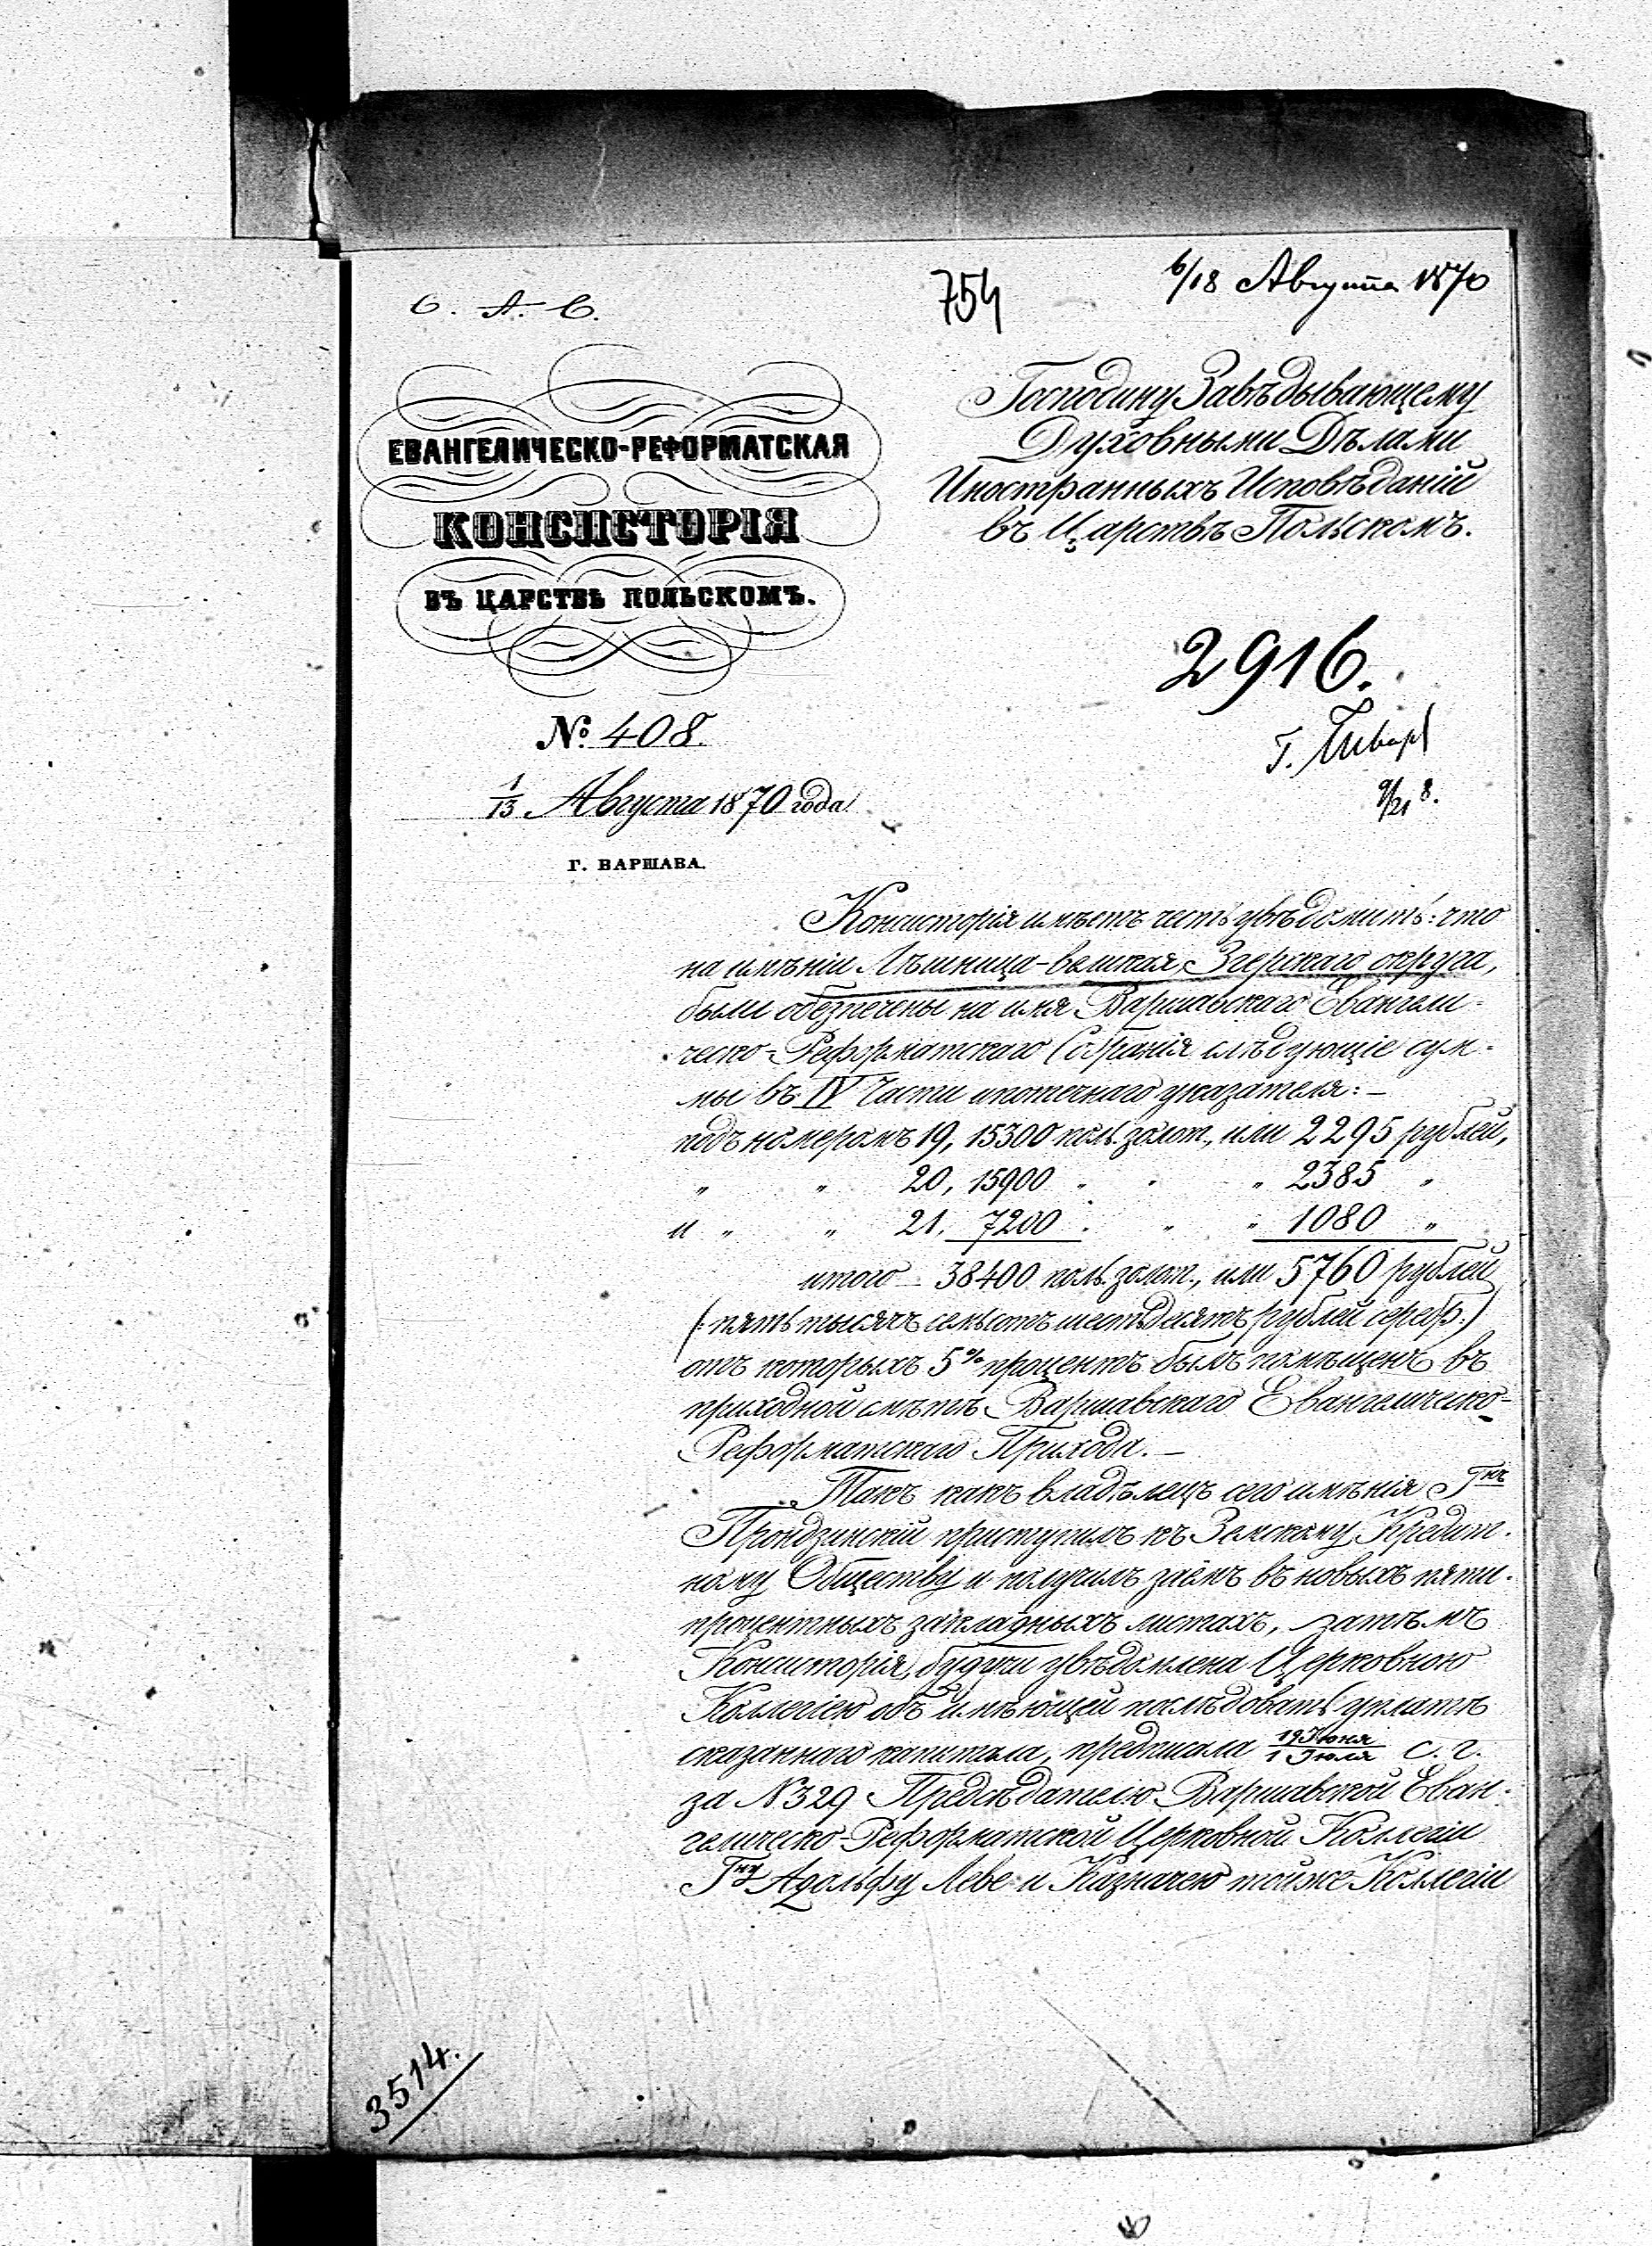 6/18 Августа 1870
754
С. А. С.
ЕВАНГЕЛИЧЕСКО-РЕФОРМАТСКАЯ
КОНСИСТОРІЯ
ВЪ ЦАРСТВѢ ПОЛЬСКОМЪ.
№ 408.
1/13 Августа 1870 года
Г. ВАРШАВА.
Господину Завѣдывающему
Духовными Дѣлами
Иностранныхъ Исповѣданій
въ Царствѣ Польскомъ.
2916.
Г.
9/21 8.
Консисторія имѣетъ честь увѣдомить: что
на имѣніи Лѣшница-велькая, Згерскаго округа,
были обезпечены на имя Варшавскаго Евангели-
ческо-Реформатскаго Собранія слѣдующіе сум-
мы въ IV Части ипотечнаго указателя: —
подъ номеромъ 19, 15300 поль. золот., или 2295 рублей,
„ „ 20, 15900 „ „ „ 2385 „
и „ „ 21, 7200 „ „ „ 1080 „
итого 38400 поль. золот., или 5760 рублей
(: пять тысячъ семьсотъ шестьдесятъ рублей сереб:)
отъ которыхъ 5% процентъ былъ помѣщенъ въ
приходной смѣтѣ Варшавскаго Евангелическо-
Реформатскаго Прихода. —
Такъ какъ владѣлецъ сего имѣнія Гнъ
Прондзинскій приступилъ къ Земскому Кредит-
ному Обществу и получилъ заёмъ въ новыхъ пяти-
процентныхъ закладныхъ листахъ, затѣмъ
Консисторія, будучи увѣдомлена Церковною
Коллегіею объ имѣющей послѣдовать уплатѣ
сказаннаго капитала, предписала 19 Іюня/1 Іюля с. г.
за N 329 Предсѣдателю Варшавской Еван-
гелическо-Реформатской Церковной Коллегіи
Гну Адольфу Леве и Казначею тойже Коллегіи
3514.